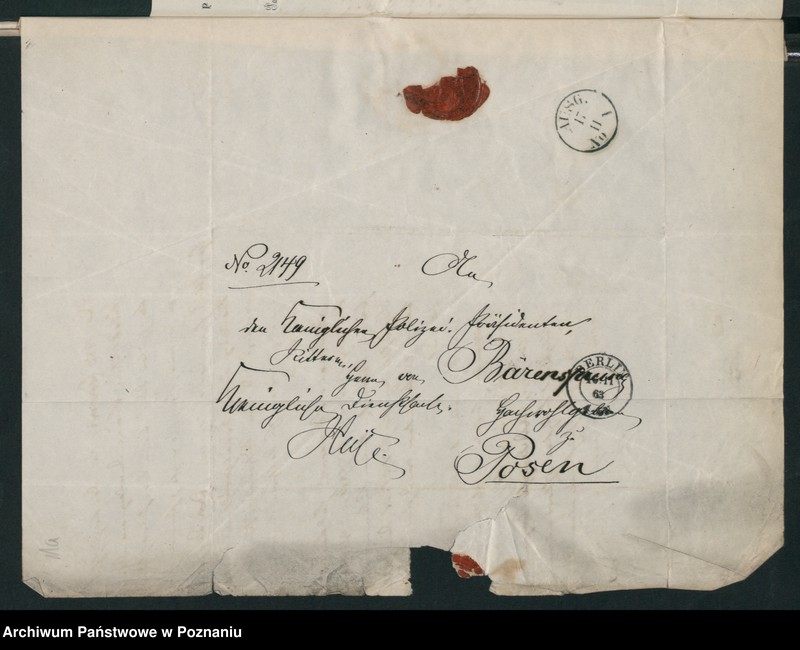 AUSG. 1
17 11
No
No. 2149
An
den Königlichen Polizei-Präsidenten,
Ritter
Herrn von Bärensprung
BERLIN
11
63
Königliche Dienstsache.
Hochwohlgeboren
zu
Posen
Archiwum Państwowe w Poznaniu